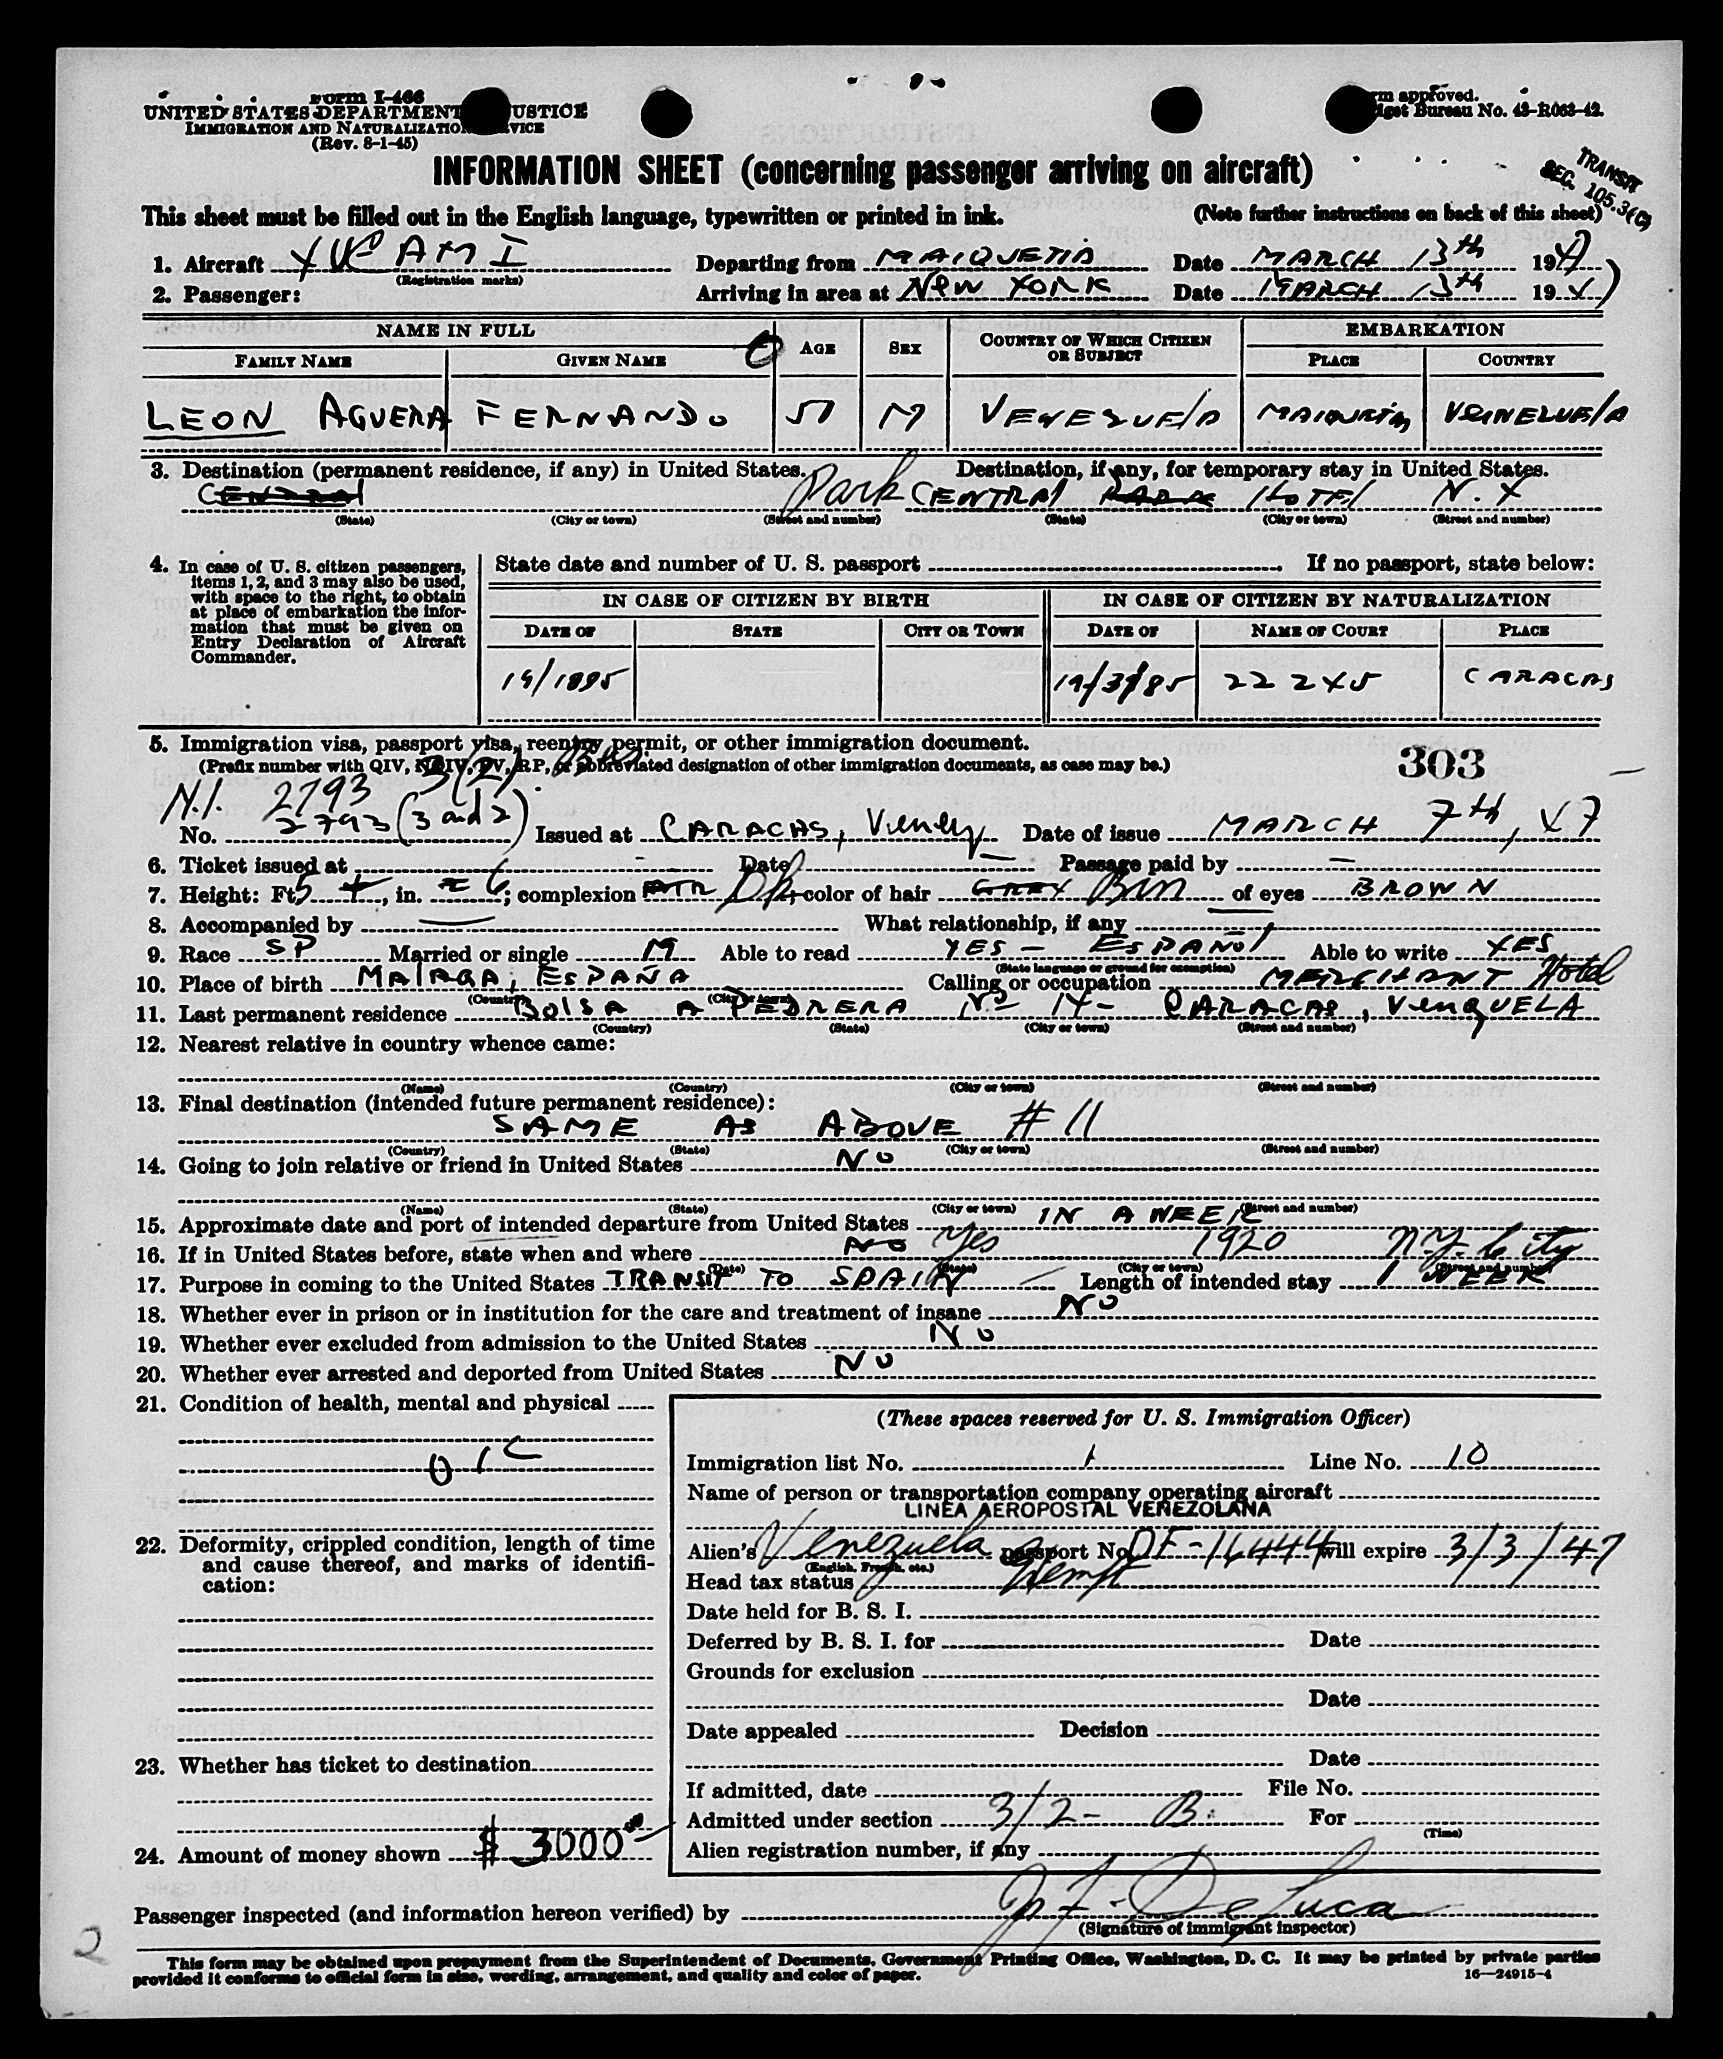 Form I-466
UNITED STATES DEPARTMENT JUSTICE
IMMIGRATION AND NATURALIZATION SERVICE
(Rev. 8-1-45)
Form approved.
Budget Bureau No. 43-R063-42.
TRANSIT
SEC. 105.3(C)
INFORMATION SHEET (concerning passenger arriving on aircraft)
This sheet must be filled out in the English language, typewritten or printed in ink. (Note further instructions on back of this sheet)
1. Aircraft YV AMI Departing from MAIQUETIA Date MARCH 13th 1947
(Registration marks)
2. Passenger: Arriving in area at NEW YORK Date MARCH 13th 19
NAME IN FULL AGE SEX COUNTRY OF WHICH CITIZEN OR SUBJECT EMBARKATION
FAMILY NAME GIVEN NAME PLACE COUNTRY
LEON AGUERA FERNANDO 51 M VENEZUELA MAIQUETIA VENEZUELA
3. Destination (permanent residence, if any) in United States. Destination, if any, for temporary stay in United States.
CENTRAL Park CENTRAL PARK HOTEL N.Y
(State) (City or town) (Street and number) (State) (City or town) (Street and number)
4. In case of U. S. citizen passengers, items 1, 2, and 3 may also be used, with space to the right, to obtain at place of embarkation the information that must be given on Entry Declaration of Aircraft Commander.
State date and number of U. S. passport If no passport, state below:
IN CASE OF CITIZEN BY BIRTH IN CASE OF CITIZEN BY NATURALIZATION
DATE OF STATE CITY OR TOWN DATE OF NAME OF COURT PLACE
19/1895 22245 CARACAS
5. Immigration visa, passport visa, reentry permit, or other immigration document.
(Prefix number with QIV, NQIV, PV, RP, or abbreviated designation of other immigration documents, as case may be.)
303
N.I. 2793 3(2)
No. 2793 (3 and 2) Issued at CARACAS, Venez, Date of issue MARCH 7th, 47
6. Ticket issued at — Date — Passage paid by —
7. Height: Ft. 5, in. 6; complexion Dk, color of hair GREY Brn of eyes BROWN
8. Accompanied by — What relationship, if any —
9. Race SP Married or single M Able to read YES - ESPAÑOL Able to write YES
(State language or ground for exemption)
10. Place of birth MALAGA, ESPAÑA Calling or occupation MERCHANT Hotel
(Country) (City or town)
11. Last permanent residence BOLSA A PEDRERA No 14 - CARACAS, VenezUELA
(Country) (State) (City or town) (Street and number)
12. Nearest relative in country whence came:
(Name) (Country) (City or town) (Street and number)
13. Final destination (intended future permanent residence):
SAME AS ABOVE # 11
(Country) (State) (City or town) (Street and number)
14. Going to join relative or friend in United States NO
(Name) (State) (City or town) (Street and number)
15. Approximate date and port of intended departure from United States IN A WEEK
16. If in United States before, state when and where NO Yes 1920 N.Y. City
(Date) (State) (City or town) (Street and number)
17. Purpose in coming to the United States TRANSIT TO SPAIN — Length of intended stay 1 WEEK
18. Whether ever in prison or in institution for the care and treatment of insane NO
19. Whether ever excluded from admission to the United States NO
20. Whether ever arrested and deported from United States NO
21. Condition of health, mental and physical
OK
22. Deformity, crippled condition, length of time and cause thereof, and marks of identification:
23. Whether has ticket to destination
24. Amount of money shown $ 3000 00
(These spaces reserved for U. S. Immigration Officer)
Immigration list No. 1 Line No. 10
Name of person or transportation company operating aircraft
LINEA AEROPOSTAL VENEZOLANA
Alien's Venezuela passport No. DF-16444 will expire 3/3/47
(English, French, etc.)
Head tax status Exempt
Date held for B. S. I.
Deferred by B. S. I. for Date
Grounds for exclusion
Date
Date appealed Decision
Date
If admitted, date File No.
Admitted under section 3/2 - B. For
(Time)
Alien registration number, if any
Passenger inspected (and information hereon verified) by J. F. DeLuca
(Signature of immigrant inspector)
2
This form may be obtained upon prepayment from the Superintendent of Documents, Government Printing Office, Washington, D. C. It may be printed by private parties
provided it conforms to official form in size, wording, arrangement, and quality and color of paper.
16—24915-4